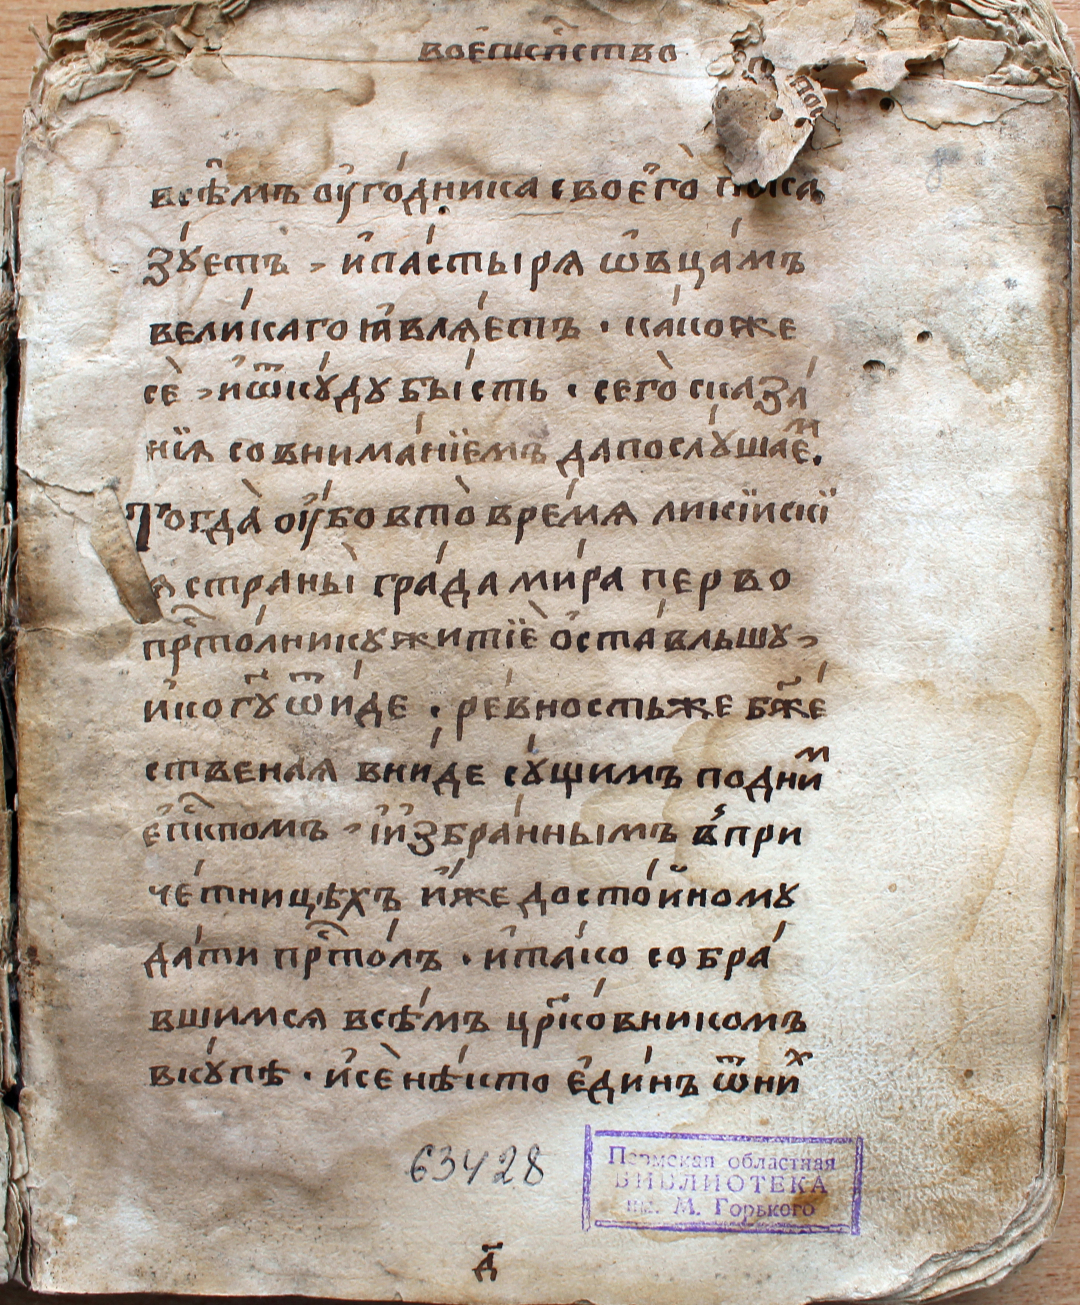 вое҆п҃сп҃ство
всѣ̑мъ ᲂу҆го́дника своего̀ пока
зꙋ́етъ , и҆ па́стырѧ ѡ҆вца́мъ
вели́каго ꙗ҆влѧ́етъ . ка́коже
сѐ , и҆ ѿкꙋ́дꙋ бы́сть . сего̀ сказа́
нїѧ со внима́нїемъ да послꙋ́шаеⷨ.
Тогда̀ ᲂу҆́бо в то̀ вре́мѧ ликїискї
ѧ страны̀ гра́да ми́ра перво
прⷭ҇то́лникꙋ житїѐ ѡ҆ста́вльшꙋ ,
и҆ ко гдⷭ҇ꙋ ѿи́де . ре́вность же бж҃е́
ственаѧ вни́де сꙋ́щимъ под ни́ⷨ
е҆пⷭ҇кпомъ , и҆ и҆збра́ннымъ в при
че́тницѣхъ и҆́же досто́йномꙋ
да́ти прⷭ҇то́лъ . и҆ та́ко собра́
вшимсѧ всѣ́мъ црⷦ҇о́вникомъ
вкꙋ́пѣ . и҆ сѐ нѣ́кто е҆ди́нъ ѿ ни́ⷯ
63428
Пермская областная
БИБЛИОТЕКА
им. М. Горького
д҃